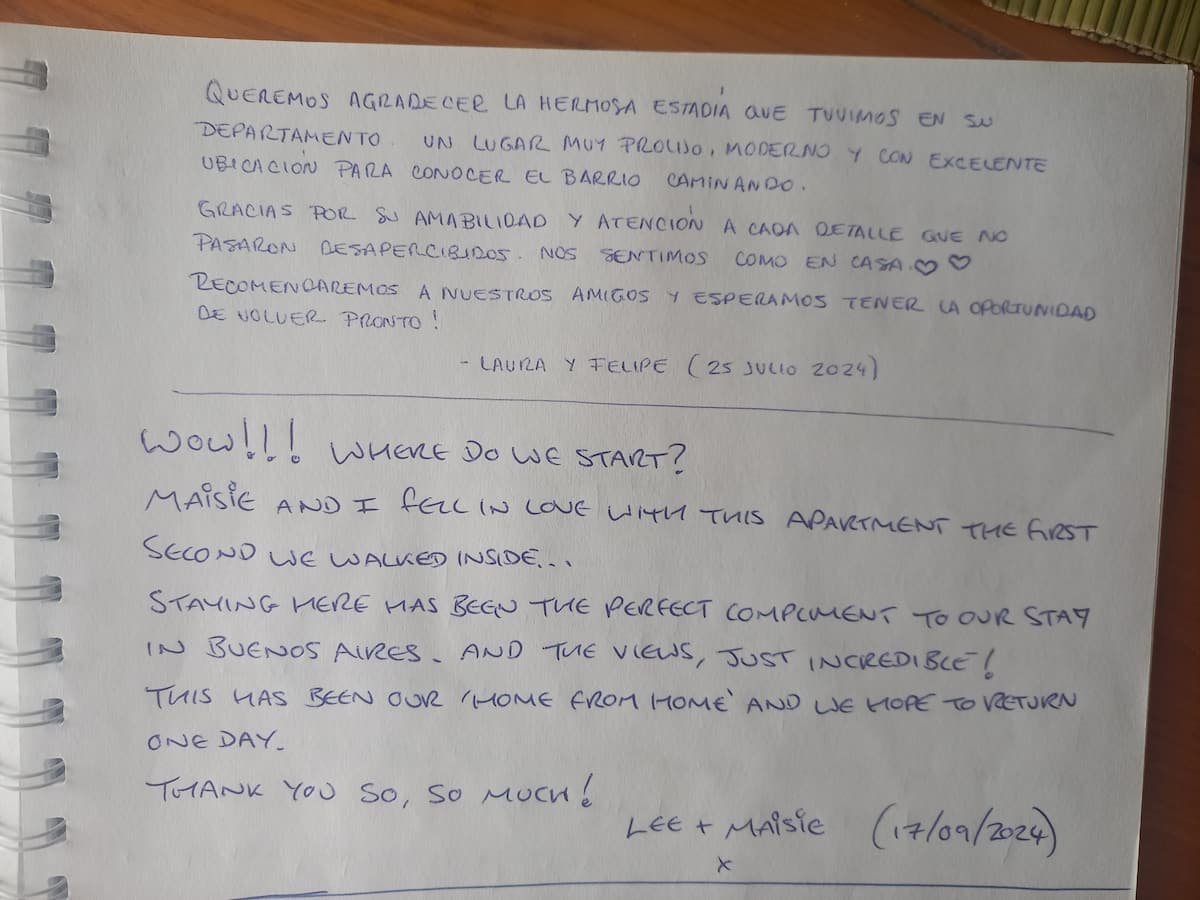 QUEREMOS AGRADECER LA HERMOSA ESTADÍA QUE TUVIMOS EN SU
DEPARTAMENTO. UN LUGAR MUY PROLIJO, MODERNO Y CON EXCELENTE
UBICACIÓN PARA CONOCER EL BARRIO CAMINANDO.
GRACIAS POR SU AMABILIDAD Y ATENCIÓN A CADA DETALLE QUE NO
PASARON DESAPERCIBIDOS. NOS SENTIMOS COMO EN CASA. ♡ ♡
RECOMENDAREMOS A NUESTROS AMIGOS Y ESPERAMOS TENER LA OPORTUNIDAD
DE VOLVER PRONTO!
- LAURA Y FELIPE (25 JULIO 2024)
WOW!!! WHERE DO WE START?
MAISIE AND I FELL IN LOVE WITH THIS APARTMENT THE FIRST
SECOND WE WALKED INSIDE...
STAYING HERE HAS BEEN THE PERFECT COMPLIMENT TO OUR STAY
IN BUENOS AIRES. AND THE VIEWS, JUST INCREDIBLE!
THIS HAS BEEN OUR 'HOME FROM HOME' AND WE HOPE TO RETURN
ONE DAY.
THANK YOU SO, SO MUCH!
LEE + MAISIE (17/09/2024)
x